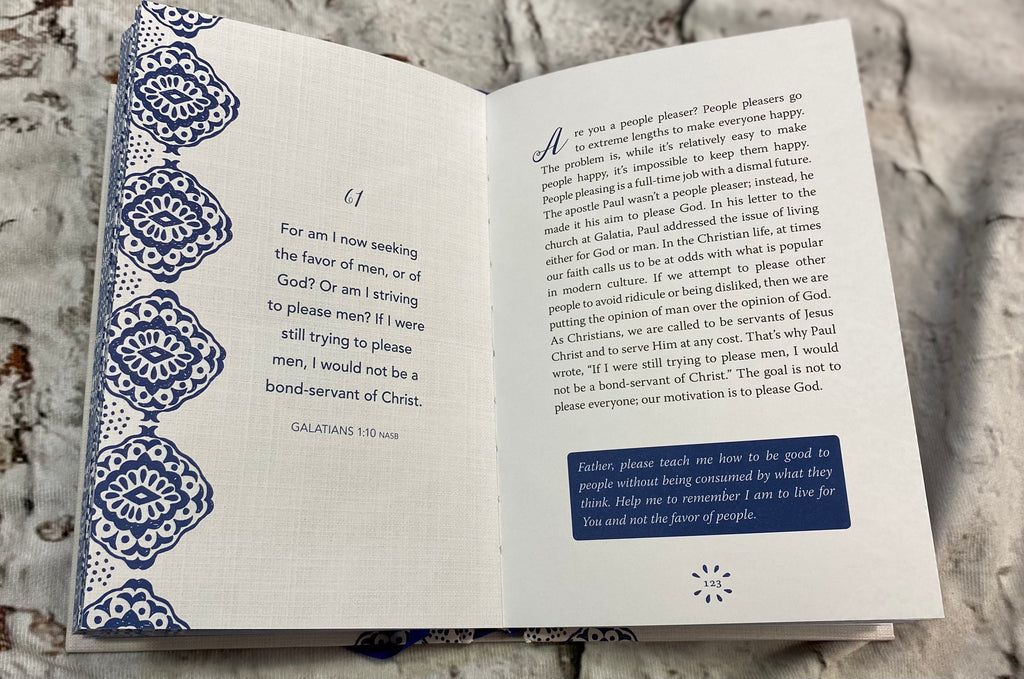 61
For am I now seeking
the favor of men, or of
God? Or am I striving
to please men? If I were
still trying to please
men, I would not be a
bond-servant of Christ.
GALATIANS 1:10 NASB
Are you a people pleaser? People pleasers go
to extreme lengths to make everyone happy.
The problem is, while it's relatively easy to make
people happy, it's impossible to keep them happy.
People pleasing is a full-time job with a dismal future.
The apostle Paul wasn't a people pleaser; instead, he
made it his aim to please God. In his letter to the
church at Galatia, Paul addressed the issue of living
either for God or man. In the Christian life, at times
our faith calls us to be at odds with what is popular
in modern culture. If we attempt to please other
people to avoid ridicule or being disliked, then we are
putting the opinion of man over the opinion of God.
As Christians, we are called to be servants of Jesus
Christ and to serve Him at any cost. That's why Paul
wrote, “If I were still trying to please men, I would
not be a bond-servant of Christ.” The goal is not to
please everyone; our motivation is to please God.
Father, please teach me how to be good to
people without being consumed by what they
think. Help me to remember I am to live for
You and not the favor of people.
123